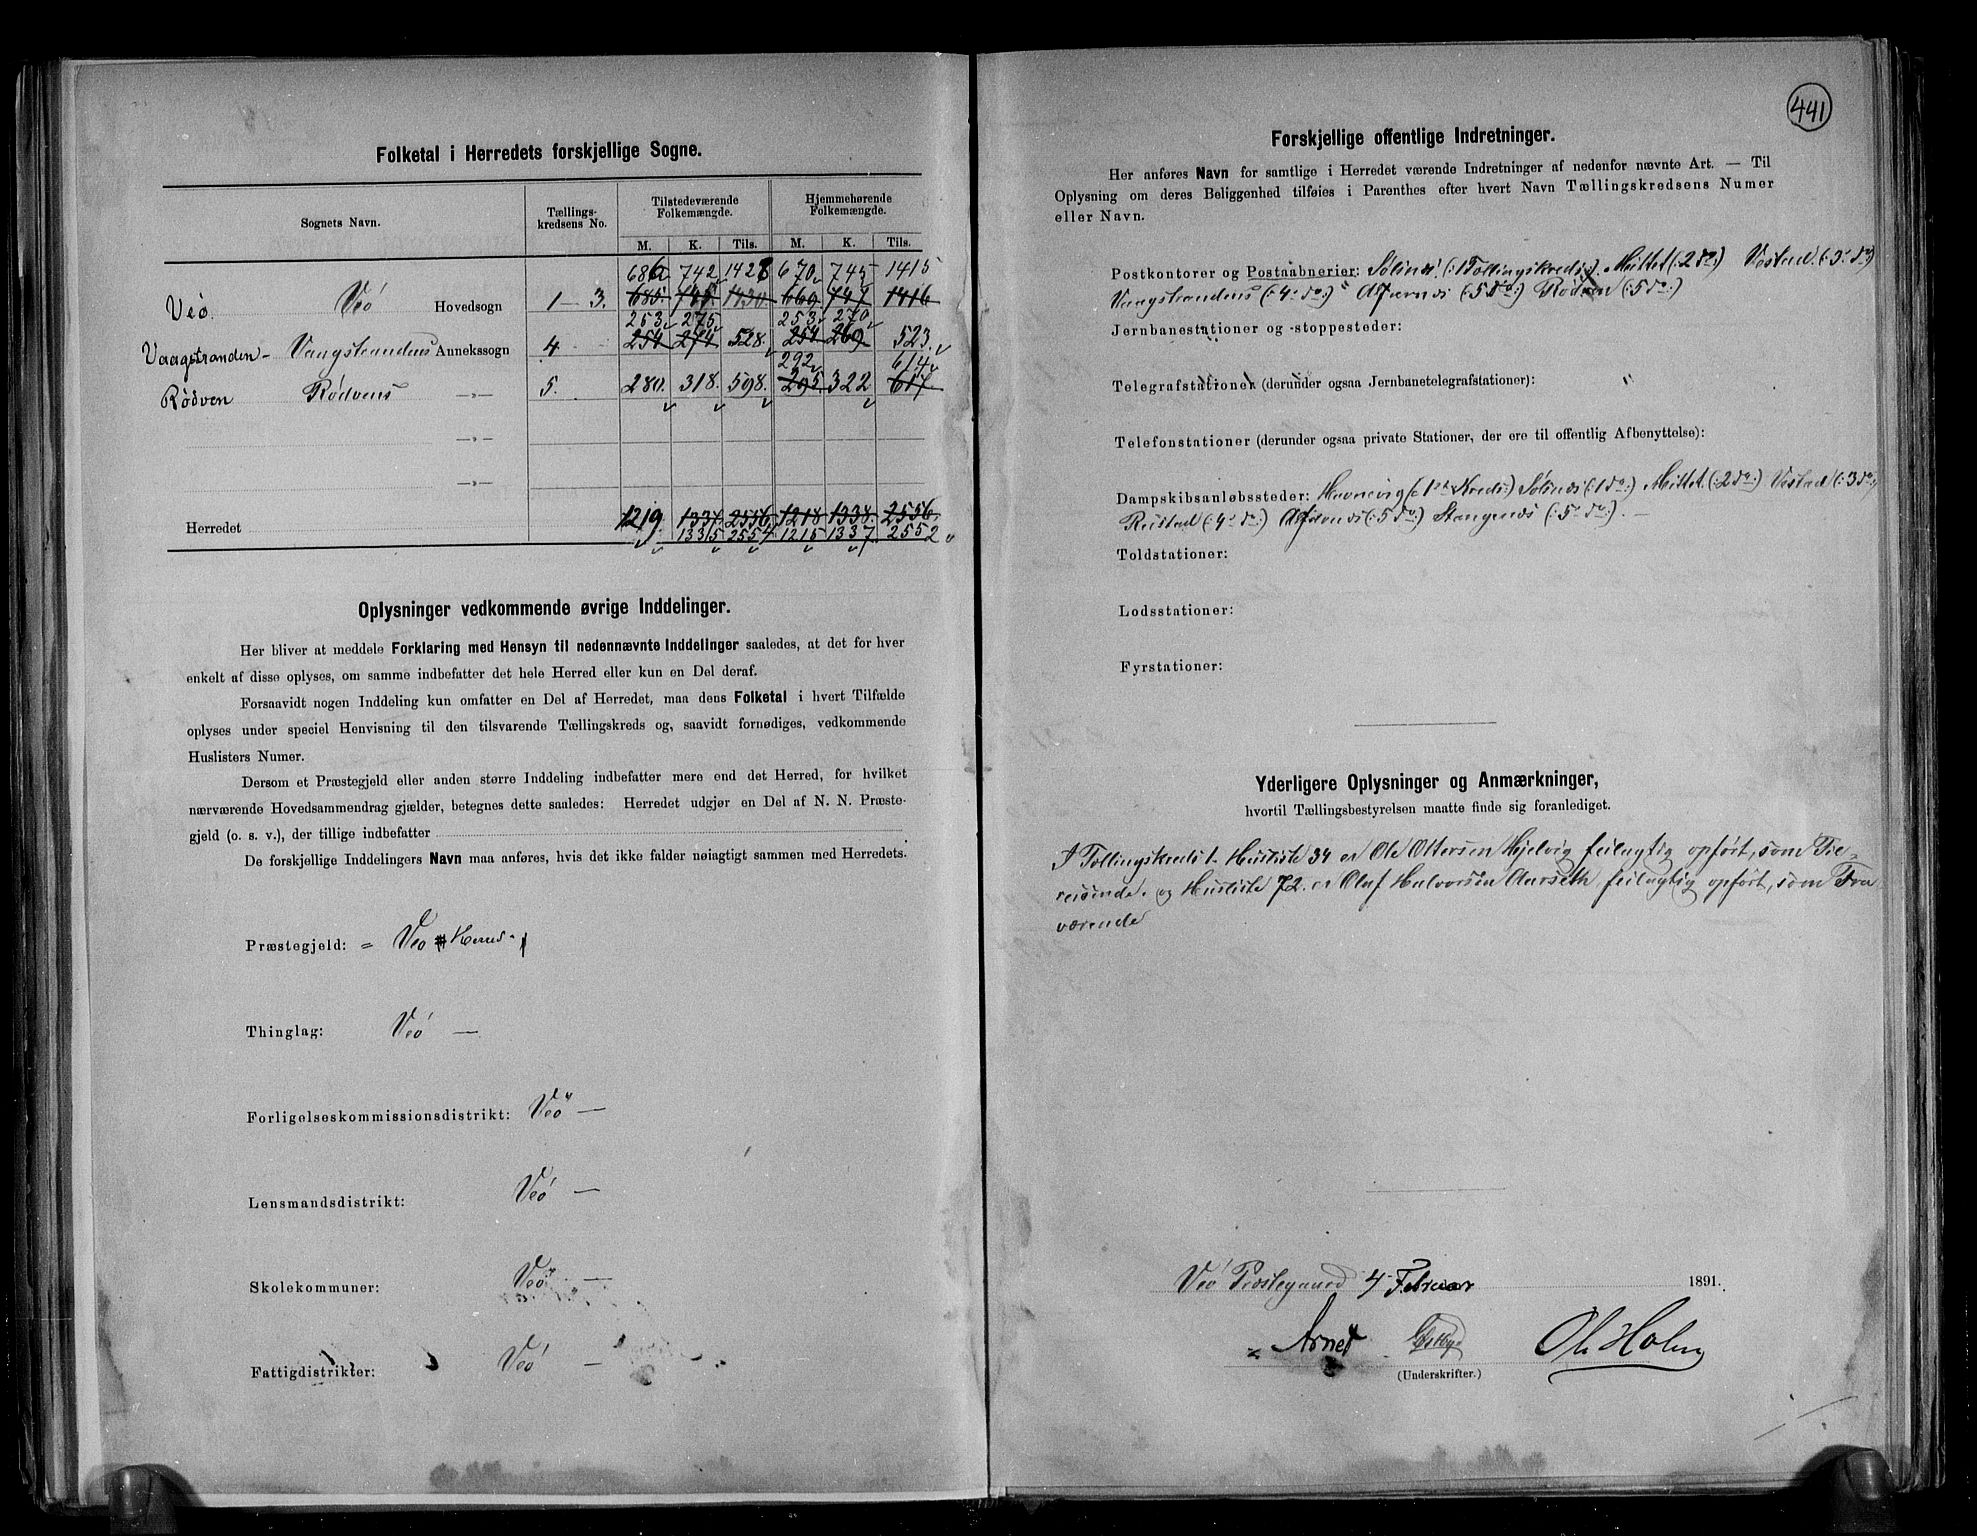 Folketal i Herredets forskjellige Sogne.
Sognets Navn.
Tællings-
kredsens No.
Tilstedeværende
Folkemængde.
Hjemmehørende
Folkemængde.
M. K. Tils. M. K. Tils.
686 742 1428 670 745 1415
Veø. Veø Hovedsogn 1-3. 685 745 1430 669 747 1416
253 275 253 270
Vaagstranden - Vaagstrandens Annekssogn 4 254 274 528. 254 269 523
292 614
Rødven Rødvens -„- 5. 280. 318. 598. 295. 322 617
-„-
-„-
Herredet 1219. 1337 2556 1218 1338. 2556.
1335 2554 1215 1337. 2552
Oplysninger vedkommende øvrige Inddelinger.
Her bliver at meddele Forklaring med Hensyn til nedennævnte Inddelinger saaledes, at det for hver
enkelt af disse oplyses, om samme indbefatter det hele Herred eller kun en Del deraf.
Forsaavidt nogen Inddeling kun omfatter en Del af Herredet, maa dens Folketal i hvert Tilfælde
oplyses under speciel Henvisning til den tilsvarende Tællingskreds og, saavidt fornødiges, vedkommende
Huslisters Numer.
Dersom et Præstegjeld eller anden større Inddeling indbefatter mere end det Herred, for hvilket
nærværende Hovedsammendrag gjælder, betegnes dette saaledes: Herredet udgjør en Del af N. N. Præste-
gjeld (o. s. v.), der tillige indbefatter
De forskjellige Inddelingers Navn maa anføres, hvis det ikke falder nøiagtigt sammen med Herredets.
Præstegjeld: = Veø Herred
Thinglag: Veø —
Forligelseskommissionsdistrikt: Veø —
Lensmandsdistrikt: Veø —
Skolekommuner: Veø —
Fattigdistrikter: Veø —
441
Forskjellige offentlige Indretninger.
Her anføres Navn for samtlige i Herredet værende Indretninger af nedenfor nævnte Art. — Til
Oplysning om deres Beliggenhed tilføies i Parenthes efter hvert Navn Tællingskredsens Numer
eller Navn.
Postkontorer og Postaabnerier: Sølsnes (:1 Tællingskreds:) Mittet (:2 do:) Vestad (:3 do:)
Vaagstrandens (:4 do:) Afarnes (:5 do:) Rødven (:5 do:)
Jernbanestationer og -stoppesteder:
Telegrafstationer (derunder ogsaa Jernbanetelegrafstationer): "
Telefonstationer (derunder ogsaa private Stationer, der ere til offentlig Afbenyttelse):
Dampskibsanløbssteder: Havnevig (:1st Kreds:) Sølsnes (:1 do:) Mittet (:2 do:) Vestad (:3 do:)
Reistad (:4 do:) Afarnes (:5 do:) Stangenes (:5 do:). —
Toldstationer:
Lodsstationer:
Fyrstationer:
Yderligere Oplysninger og Anmærkninger,
hvortil Tællingsbestyrelsen maatte finde sig foranlediget.
I Tællingskreds 1 Husliste 34 er Ole Ottersen Hjelvig feilagtig opført, som Til-
reisende. og Husliste 72. er Oluf Halvorsen Aarseth feilagtig opført, som Fra
værende
Veø Præstegaard 4 Februar 1891.
Ole Holm
(Underskrifter.)